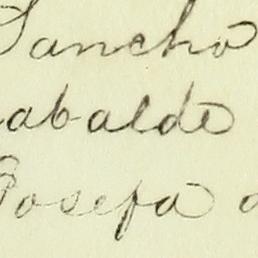 Sancho
abalde
Josefa